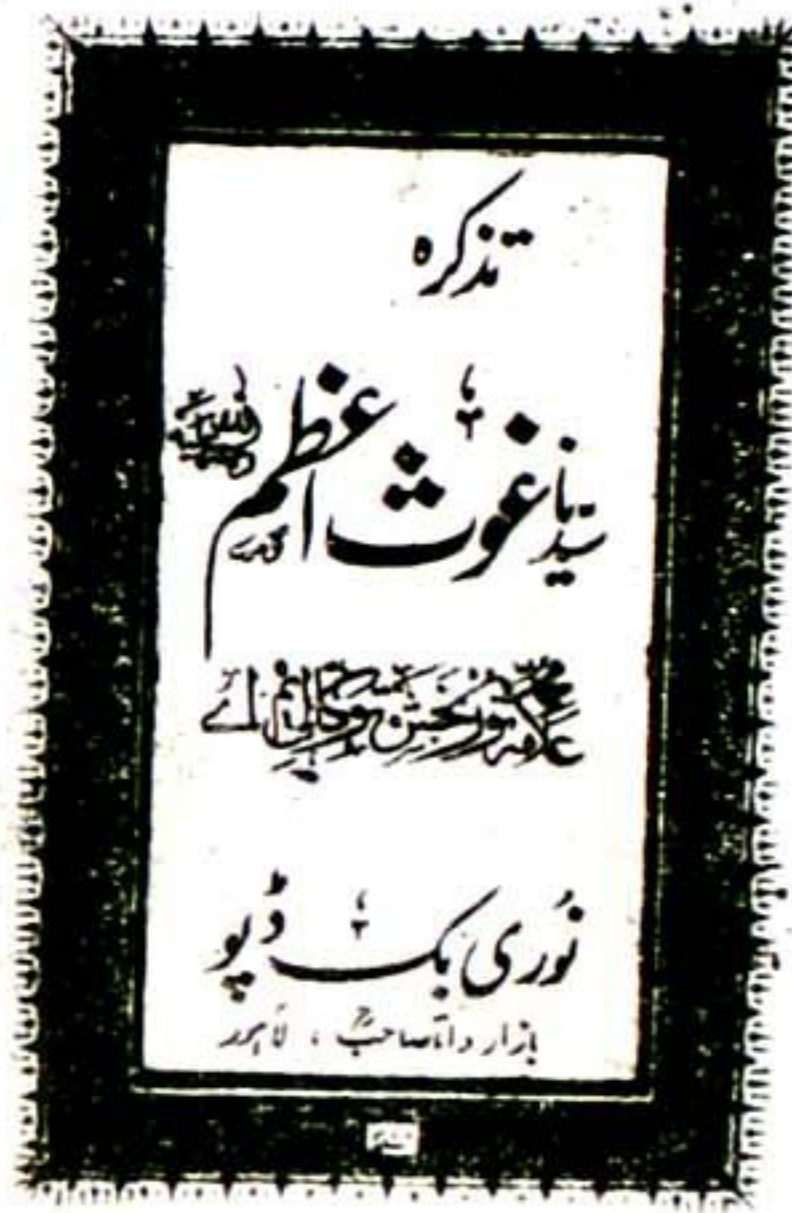 تذکرہ
سیدنا غوث اعظم
علامہ نور بخش توکلی ایم اے
نُوری بک ڈپو
بازار داتا صاحبؒ ، لاہور